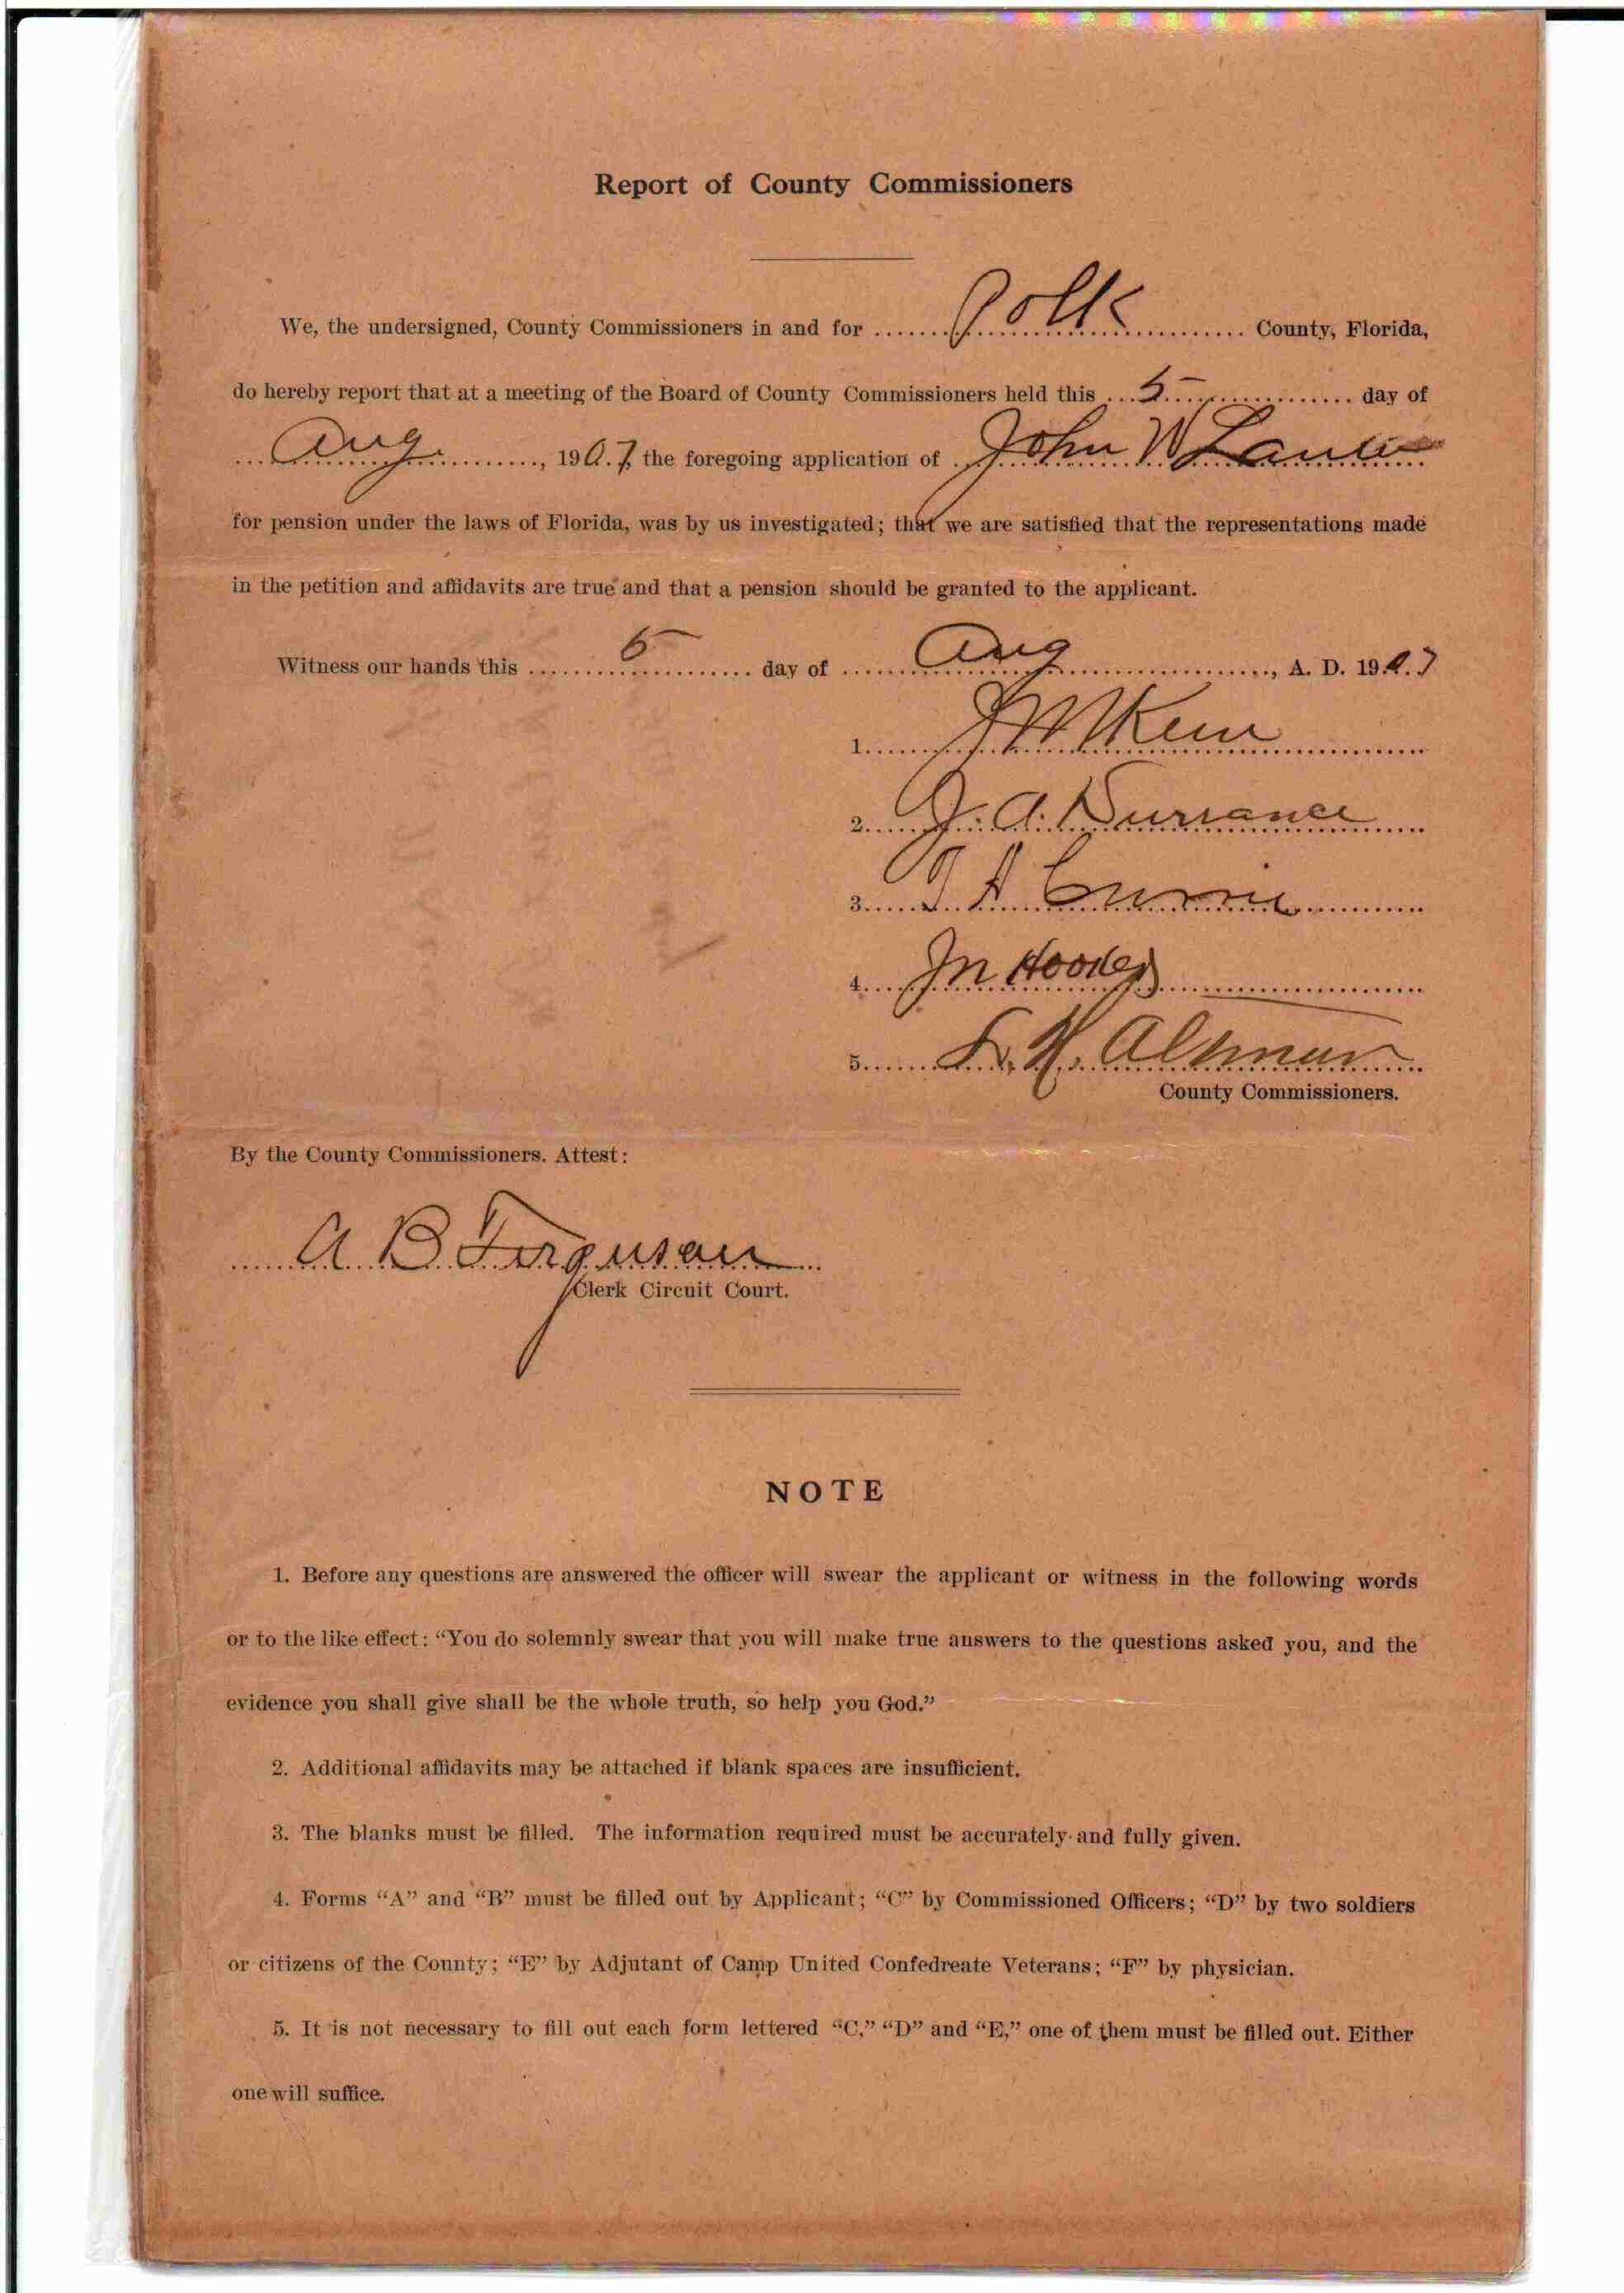 Report of County Commissioners
We, the undersigned, County Commissioners in and for Polk County, Florida,
do hereby report that at a meeting of the Board of County Commissioners held this 5 day of
Aug, 1907, the foregoing application of John W
for pension under the laws of Florida, was by us investigated; that we are satisfied that the representations made
in the petition and affidavits are true and that a pension should be granted to the applicant.
Witness our hands this 5 day of Aug, A. D. 1907
1.
2. J. A. Durrance
3. Currie
4. Hooker
5. H. Altman
County Commissioners.
By the County Commissioners. Attest:
A B Ferguson
Clerk Circuit Court.
NOTE
1. Before any questions are answered the officer will swear the applicant or witness in the following words
or to the like effect: “You do solemnly swear that you will make true answers to the questions asked you, and the
evidence you shall give shall be the whole truth, so help you God.”
2. Additional affidavits may be attached if blank spaces are insufficient.
3. The blanks must be filled. The information required must be accurately and fully given.
4. Forms “A” and “B” must be filled out by Applicant; “C” by Commissioned Officers; “D” by two soldiers
or citizens of the County; “E” by Adjutant of Camp United Confedreate Veterans; “F” by physician.
5. It is not necessary to fill out each form lettered “C,” “D” and “E,” one of them must be filled out. Either
one will suffice.